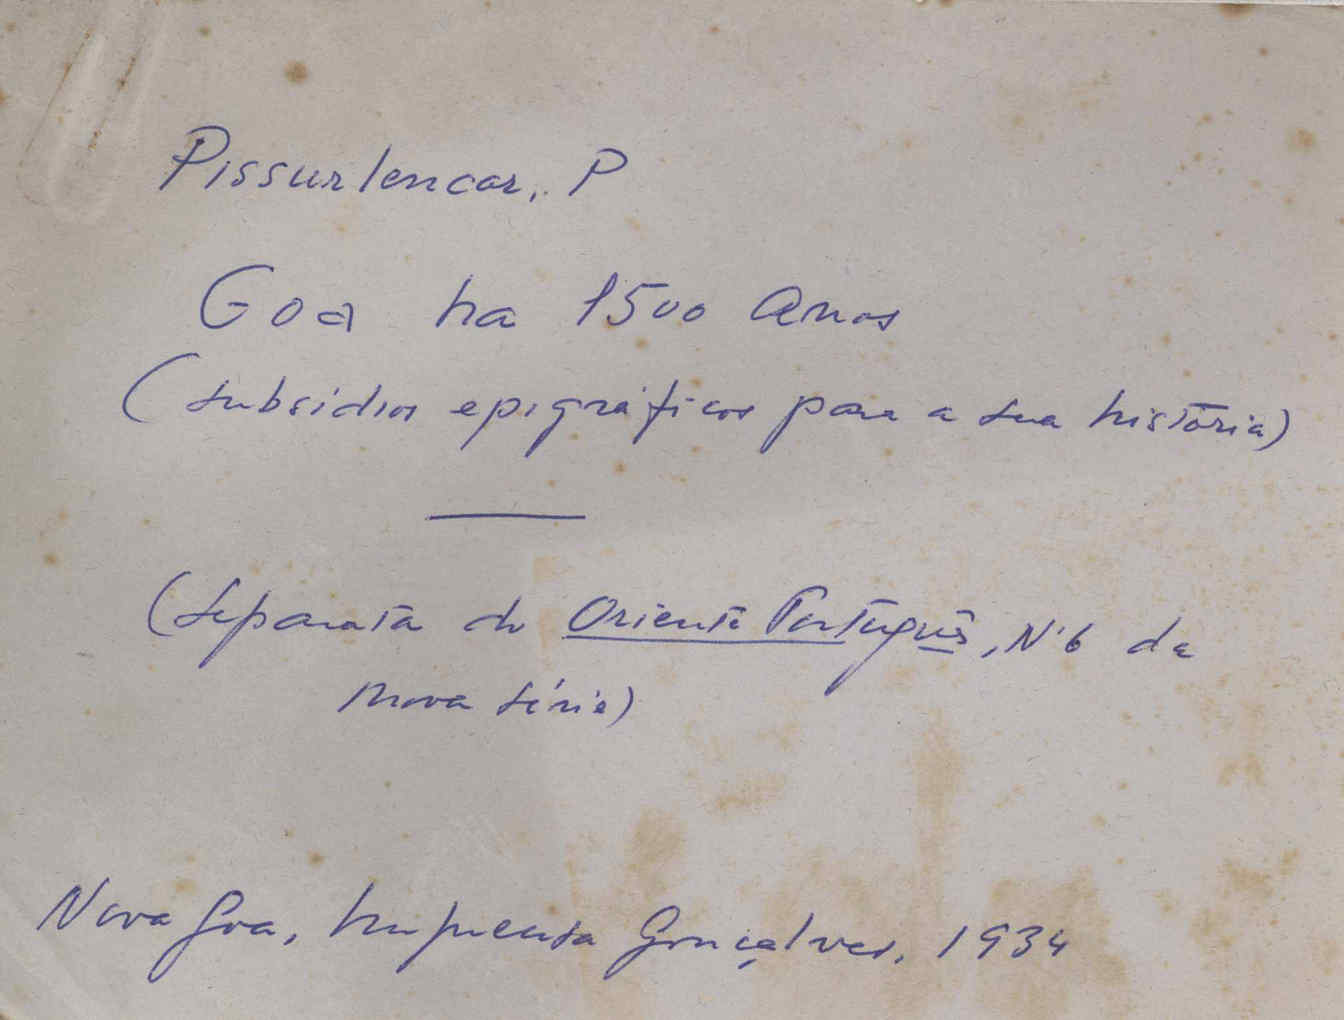 Pissurlencar, P
Goa ha 1500 anos
(subsídios epigráficos para a sua história)
(Separata do Oriente Português, Nº 6 da
nova série)
Nova Goa, Imprensa Gonçalves, 1934